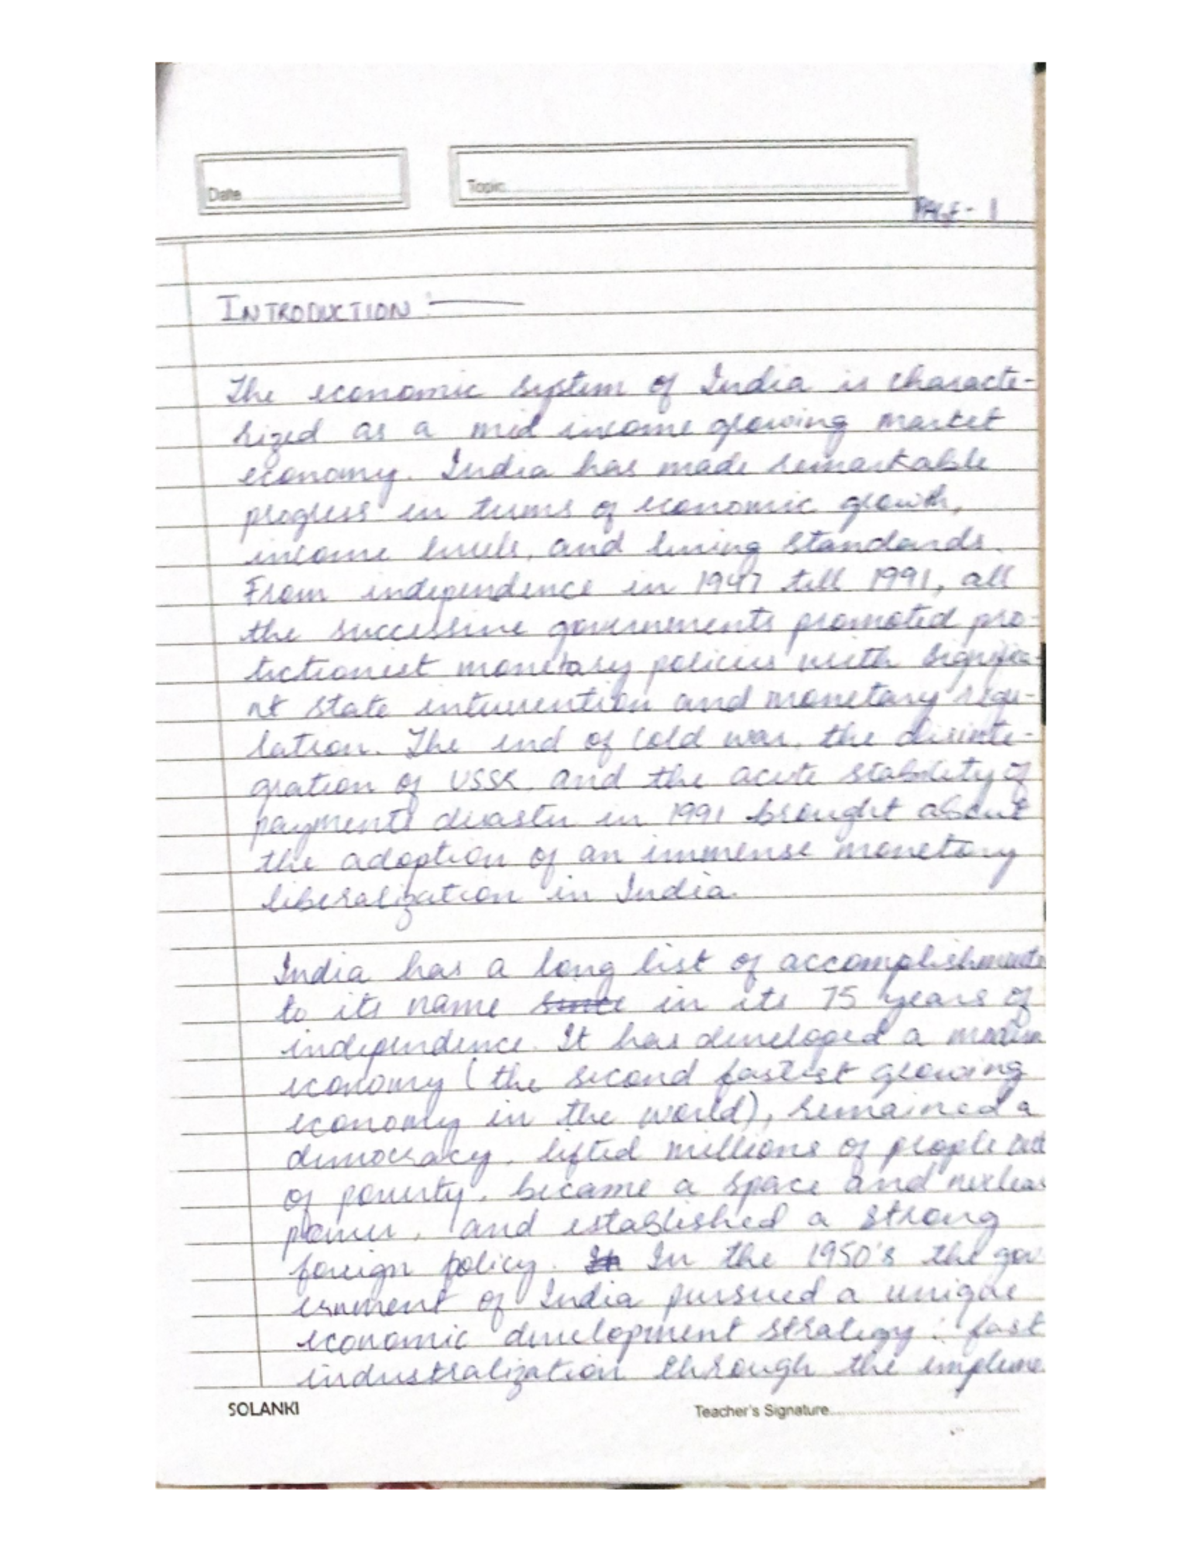 Date
Topic
PAGE - 1
INTRODUCTION :
The economic system of India is characte-
rized as a mid income growing market
economy. India has made remarkable
progress in terms of economic growth,
income levels, and living standards.
From independence in 1947 till 1991, all
the successive governments promoted pro-
tectionist monetary policies with significa-
nt state intervention and monetary regu-
lation. The end of Cold war, the disinte-
gration of USSR, and the acute stability of
payments disaster in 1991 brought about
the adoption of an immense monetary
liberalization in India.
India has a long list of accomplishments
to its name since in its 75 years of
independence. It has developed a modern
economy (the second fastest growing
economy in the world), remained a
democracy, lifted millions of people out
of poverty, became a space and nuclear
power, and established a strong
foreign policy. It In the 1950's the gov
ernment of India pursued a unique
economic development strategy : fast
industralization through the impleme
SOLANKI
Teacher's Signature